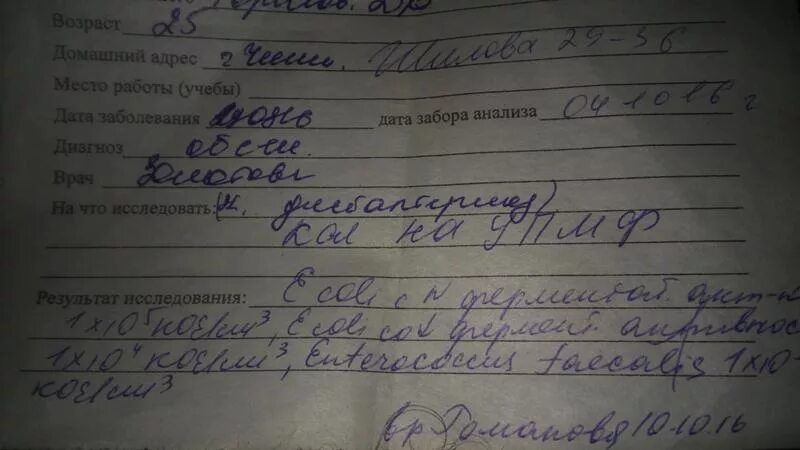 Возраст 25
Домашний адрес г Чита. Шилова 29-36
Место работы (учебы)
Дата заболевания июнь дата забора анализа 04 10 16 г
Диагноз обсл.
Врач
На что исследовать: (к. дисбактериоз)
Кал на УПМФ
Результат исследования: E coli с N ферментат. акт-ю
1х10⁵ КОЕ/см³, E coli со ↓ фермент. активнос
1х10⁴ КОЕ/см³, Enterococcus faecalis 1х10
КОЕ/см³
вр Романова 10.10.16